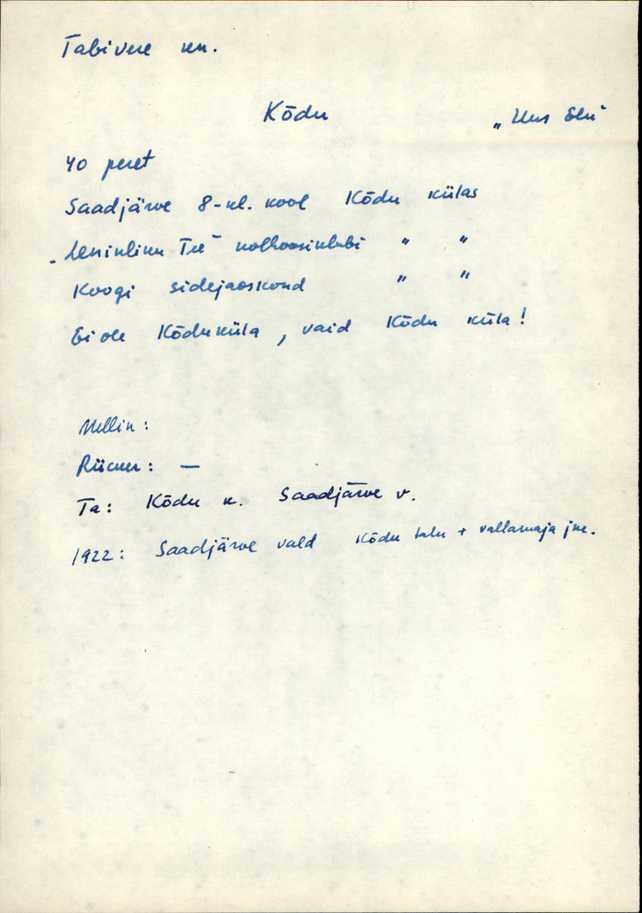 Tabivere kn.
Kõdu „Uus Elu"
40 peret
Saadjärve 8-kl. kool Kõdu külas
„Leninlinn Tee" kolhoosiklubi " "
Koogi sidejaoskond " "
Ei ole Kõduküla, vaid Kõdu küla!
Mellin:
Rücker: —
Ta: Kõdu k. Saadjärve v.
1922: Saadjärve vald Kõdu talu + vallamaja jne.